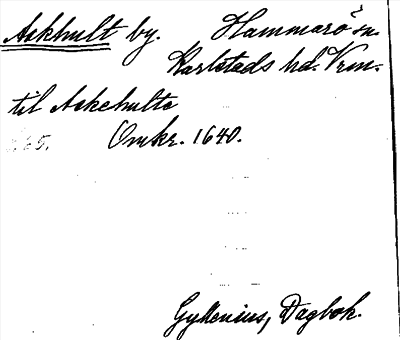 Askhult by. Hammarö sn.
Karlstads hd. Vrm.
til Askehulte
65. Omkr. 1640.
Gyllenius, Dagbok.